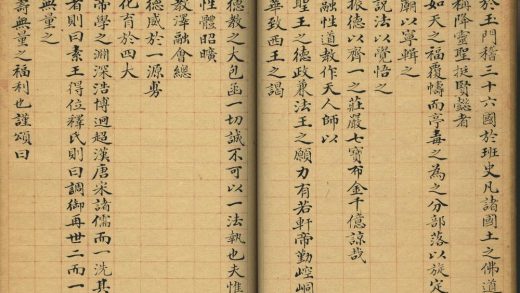 於玉門稽三十六國於班史凡諸國土之佛道
稱降靈聖挺賢懿者
如天之福覆幬而亭毒之為之分部落以旋定
廟以寧輯之
說法以覺悟之
振德以齊一之莊嚴七寶布金千億諒哉
融性道教作天人師以
聖王之德政兼法王之願力有若軒帝勤崆峒
華致西王之謁
德教之大包函一切誠不可以一法執也夫惟
性體昭曠
教澤融會總
德威於一源
化育於四大
帝學之淵深浩博迥超漢唐宋諸儒而一洗其
者則曰素王得位釋氏則曰調御再世二而一
無量之
壽無量之福利也謹頌曰